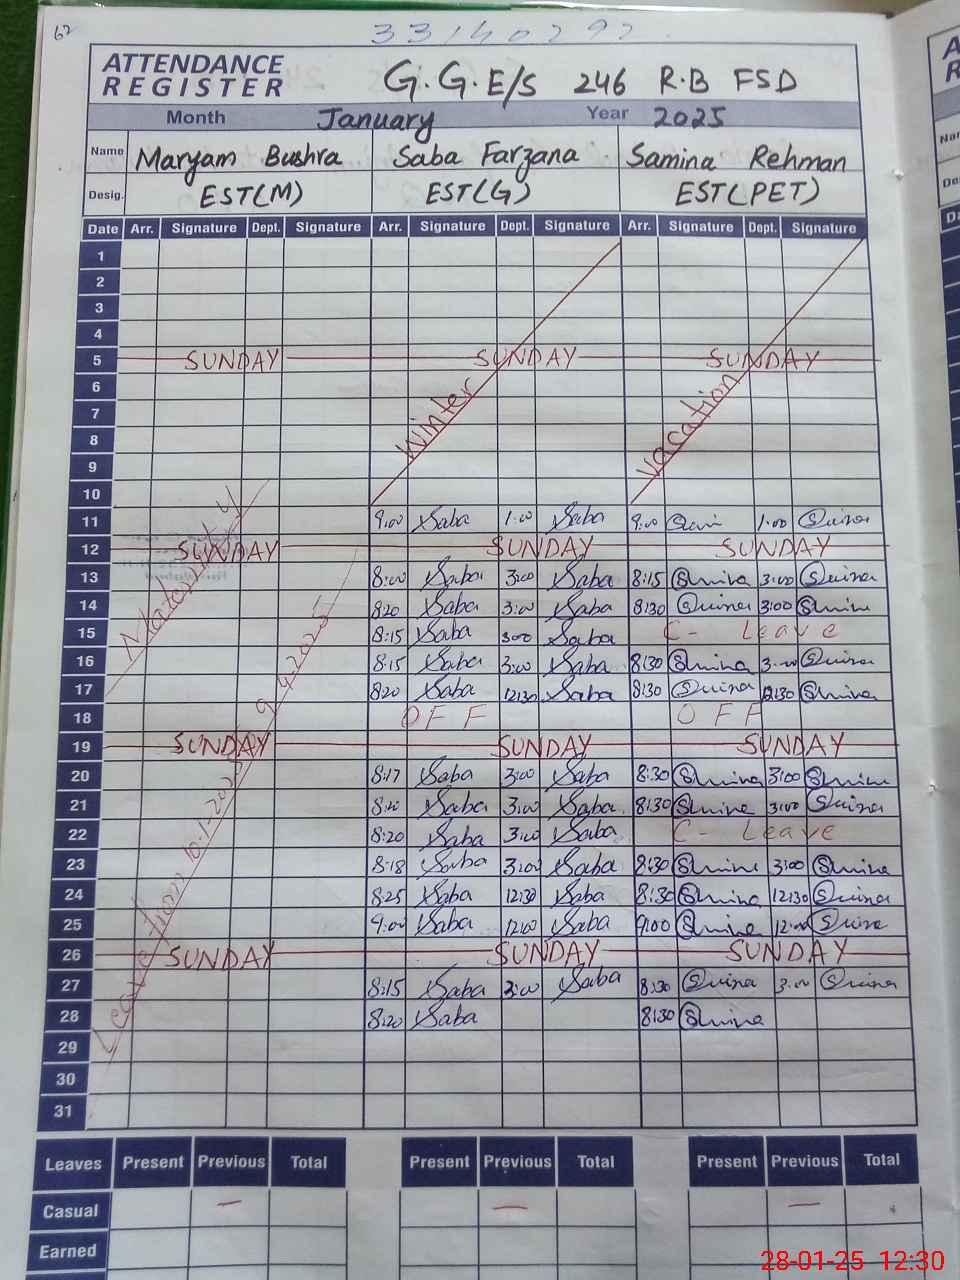 62
33140292
ATTENDANCE REGISTER G.G.E/S 246 R.B FSD
Month January Year 2025
Name Maryam Bushra Saba Farzana Samina Rehman
Desig. EST(M) EST(G) EST(PET)
Date Arr. Signature Dept. Signature Arr. Signature Dept. Signature Arr. Signature Dept. Signature
1
2
3
4
5 SUNDAY SUNDAY SUNDAY
6
7
8
9
10
Winter Vacation
11 9:00 Saba 1:00 Saba 9:00 1:00
12 SUNDAY SUNDAY SUNDAY
13 8:00 Saba 3:00 Saba 8:15 3:00
14 8:20 Saba 3:00 Saba 8:30 3:00
15 8:15 Saba 3:00 Saba C- Leave
16 8:15 Saba 3:00 Saba 8:30 3:00
17 8:20 Saba 12:30 Saba 8:30 12:30
18 OFF OFF
19 SUNDAY SUNDAY SUNDAY
20 8:17 Saba 3:00 Saba 8:30 3:00
21 8:20 Saba 3:00 Saba 8:30 3:00
22 8:20 Saba 3:00 Saba C- Leave
23 8:18 Saba 3:00 Saba 8:30 3:00
24 8:25 Saba 12:30 Saba 8:30 12:30
25 9:00 Saba 12:00 Saba 9:00 12:00
26 SUNDAY SUNDAY SUNDAY
27 8:15 Saba 3:00 Saba 8:30 3:00
28 8:20 Saba 8:30
29
30
31
Maternity
Leave from 10-1-2025
Leaves Present Previous Total Present Previous Total Present Previous Total
Casual — — —
Earned
28-01-25 12:30